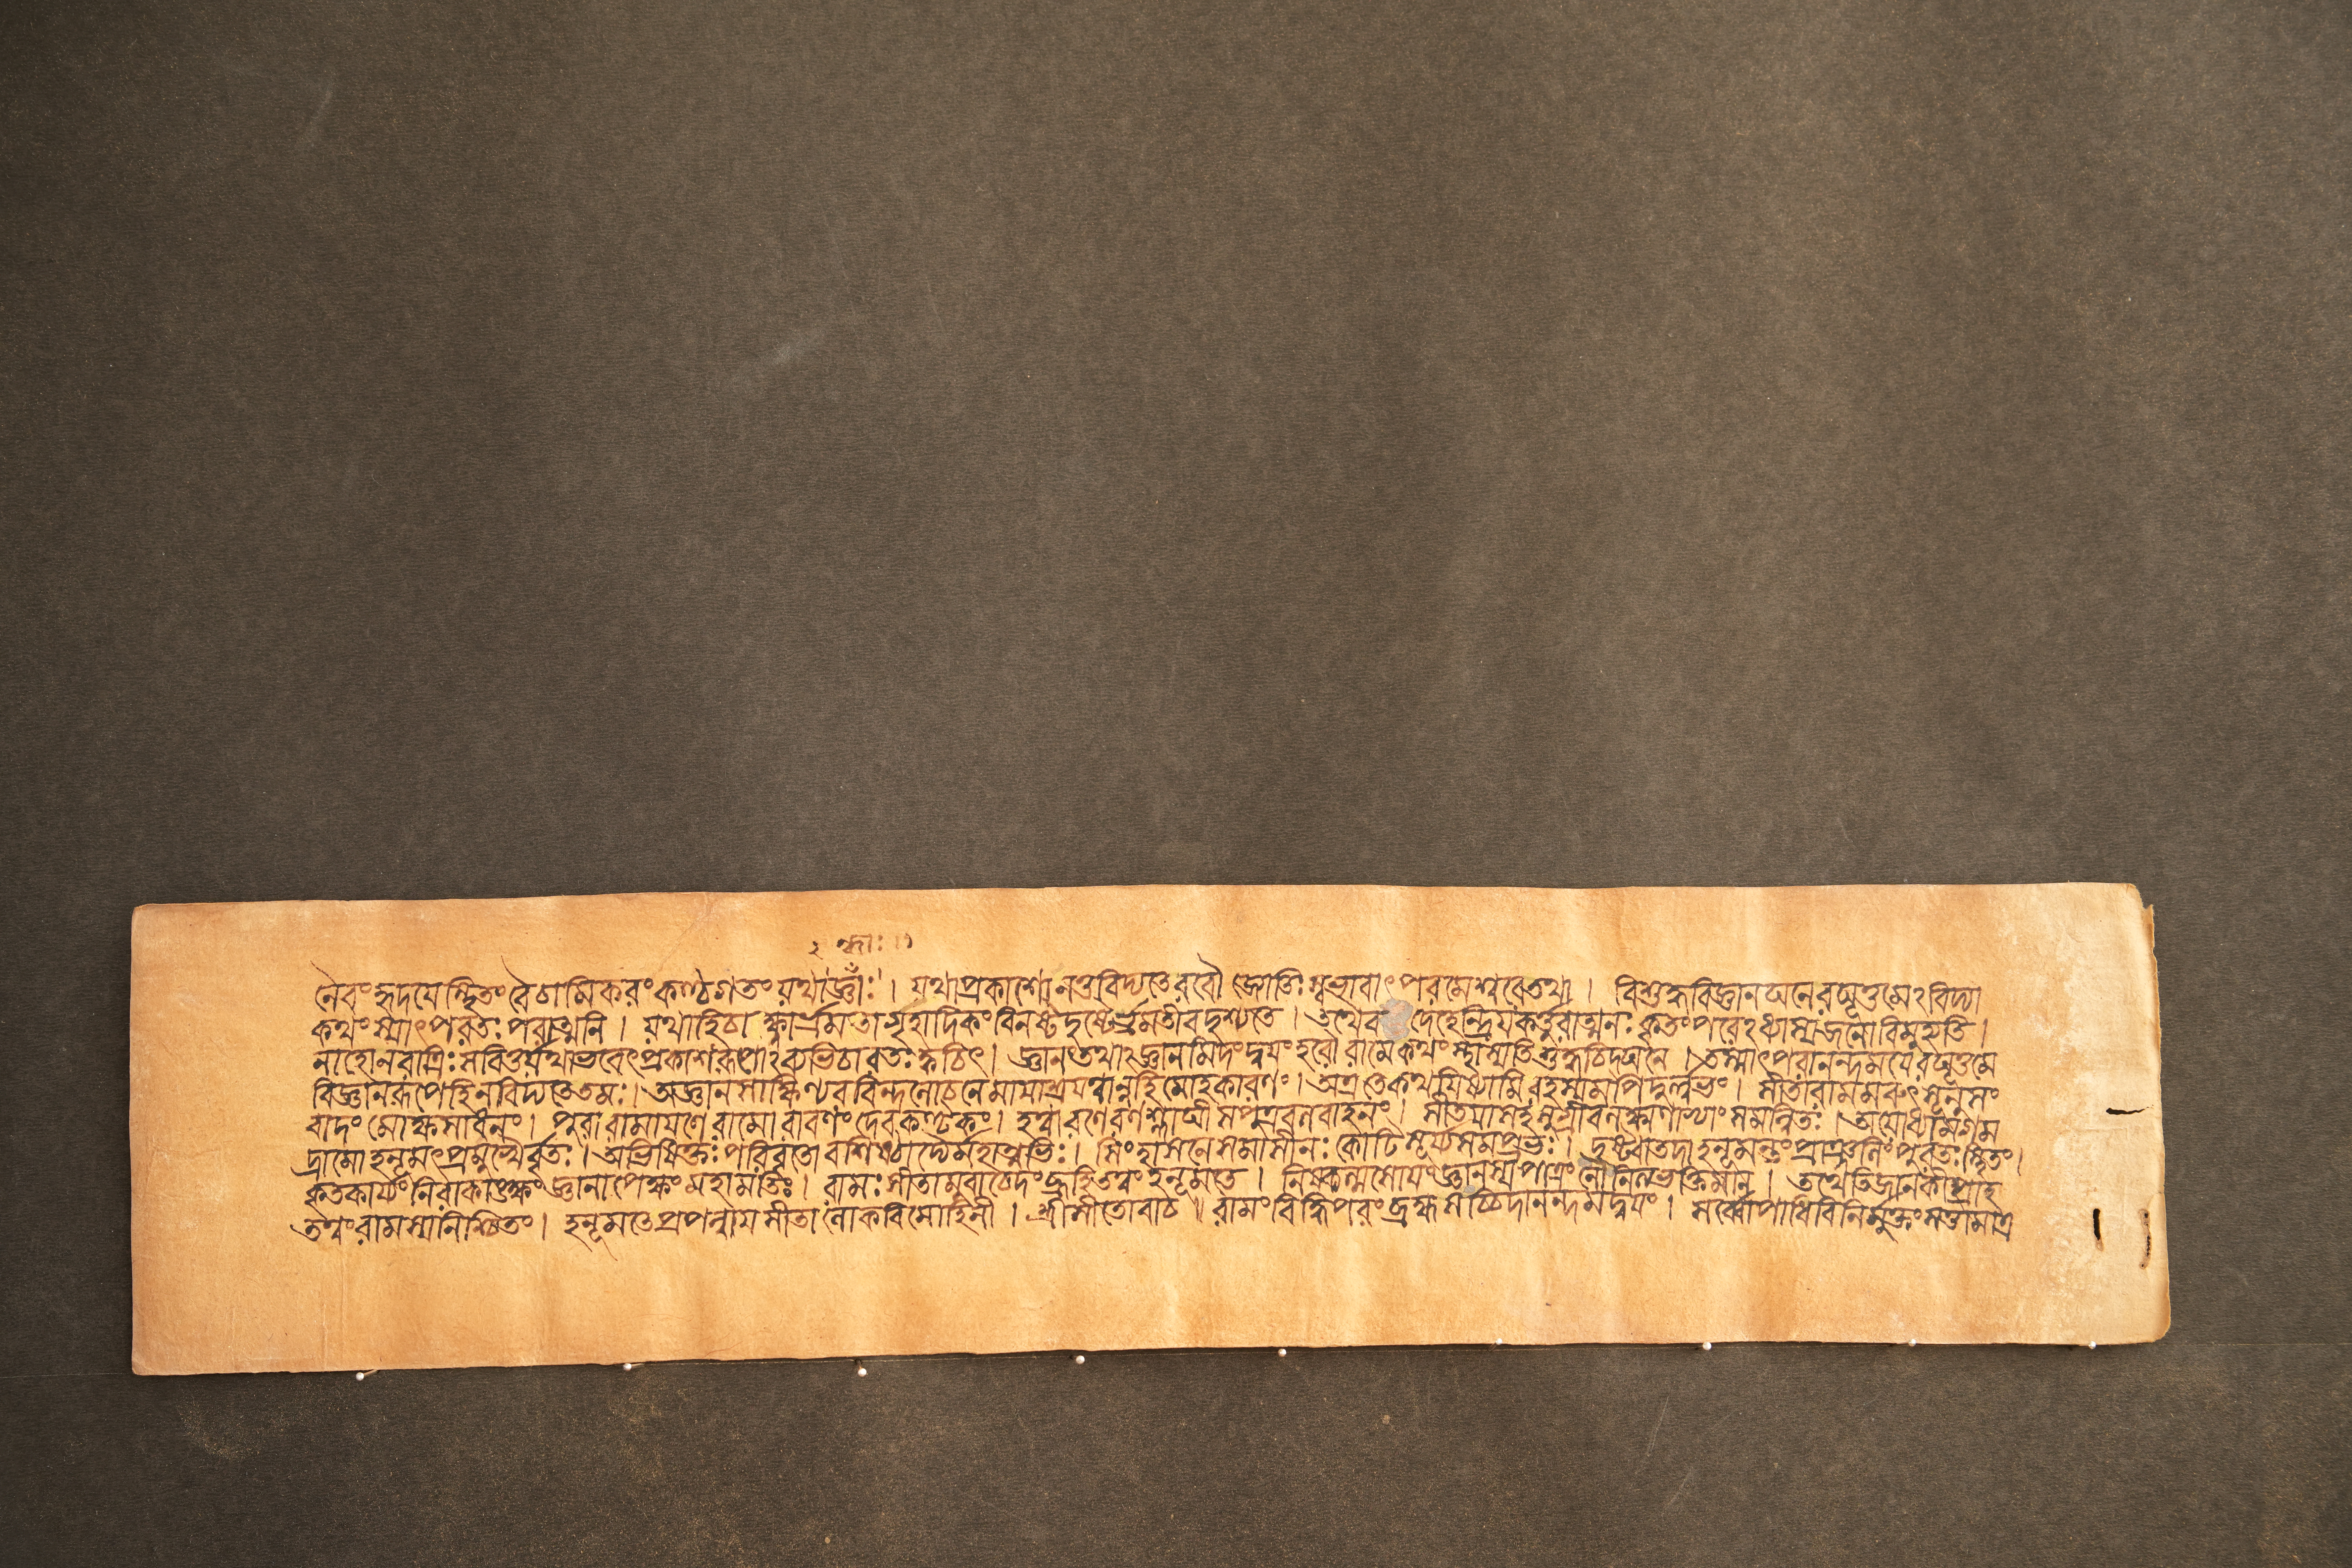 ২ জ্ঞাঃ ।।
নৈবংহৃদয়েস্থিতংবৈচামিকরংকণ্ঠগতংযথাজ্ঞাঁঃ । যথাপ্রকাশোনতুবিদ্যতেরবৌ জ্যোতিঃস্বভাবাৎপরমেশ্বরেতথা । বিশুদ্ধবিজ্ঞানঘনেরঘূত্তমেঽবিদ্যা
কথংস্যাৎপরতঃপরাত্মনি । যথাহিচাক্ষ্ণাভ্রমিতাগৃহাদিকংবিনষ্টদৃষ্টের্ভ্রমতীবদৃশ্যতে । তথৈব দেহেন্দ্রিয়কর্তুরাত্মনঃকৃতংপরেঽধ্যাস্যজনোবিমুহ্যতি ।
নাহোনরাত্রিঃসবিতুর্যথাভবেৎপ্রকাশরূপাঽব্যভিচারতঃক্বচিৎ । জ্ঞানংতথাঽজ্ঞানমিদংদ্বয়ংহরৌরামেকথংস্থাস্যতিশুদ্ধচিদ্ঘনে । তস্মাৎপরানন্দময়েরঘূত্তমে
বিজ্ঞানরূপেহিনবিদ্যতেতমঃ । অজ্ঞানসাক্ষিণ্যরবিন্দলোচনেমায়াশ্রয়ত্বান্নহিমোহকারণং । অত্রতেকথয়িষ্যামিরহস্যমপিদুর্লভং । সীতারামমরুৎসূনুসং
বাদংমোক্ষসাধনং । পুরারামায়ণেরামোরাবণংদেবকণ্টকং । হত্বারণেরণশ্লাঘীসপুত্রবলবাহনং । সীতয়াসহসুগ্রীবলক্ষ্মণাভ্যাংসমন্বিতঃ । অযোধ্যামগম
দ্রামোহনূমৎপ্রমুখৈর্বৃতঃ । অভিষিক্তঃপরিবৃতোবশিষ্ঠাদ্যৈর্মহাত্মভিঃ । সিংহাসনেসমাসীনঃকোটিসূর্য্যসমপ্রভঃ । দৃষ্ট্বাতদাহনূমন্তংপ্রাঞ্জলিংপুরতঃস্থিতং ।
কৃতকার্য্যংনিরাকাংক্ষংজ্ঞানাপেক্ষংমহামতিং । রামঃসীতামুবাচেদংব্রূহিতত্বংহনূমতে । নিষ্কল্মষোয়ংজ্ঞানস্যপাত্রংনৌনিত্যভক্তিমান্ । তথেতিজানকীপ্রাহ
তত্বংরামস্যনিশ্চিতং । হনূমতেপ্রপন্নায়সীতালোকবিমোহিনী । শ্রীসীতোবাচ ॥ রামংবিদ্ধিপরংব্রহ্মসচ্চিদানন্দমদ্বয়ং । সর্ব্বোপাধিবিনির্মুক্তংসত্তামাত্র